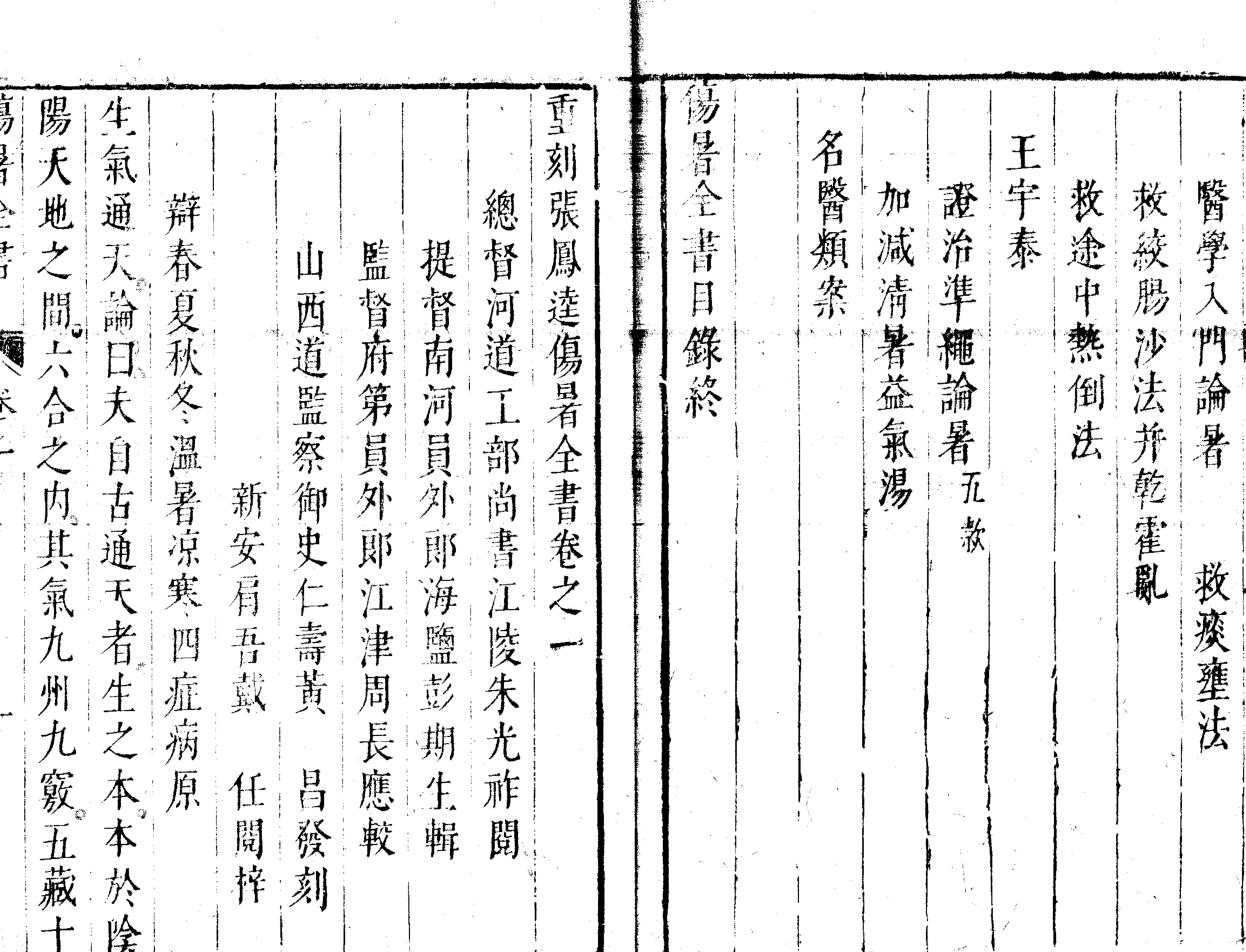 醫學入門論暑　救痰壅法
救絞腸沙法并乾霍亂
救途中熱倒法
王宇泰
證治準繩論暑五款
加減清暑益氣湯
名醫類案
傷暑全書目錄終
重刻張鳳逵傷暑全書卷之一
總督河道工部尚書江陵朱光祚閱
提督南河員外郎海鹽彭期生輯
監督府第員外郎江津周長應較
山西道監察御史仁壽黃　昌發刻
新安肩吾戴　任閱梓
辯春夏秋冬溫暑凉寒四症病原
生氣通天論曰夫自古通天者生之本本於陰
陽天地之間六合之內其氣九州九竅五藏十
傷暑全書　卷之一　一